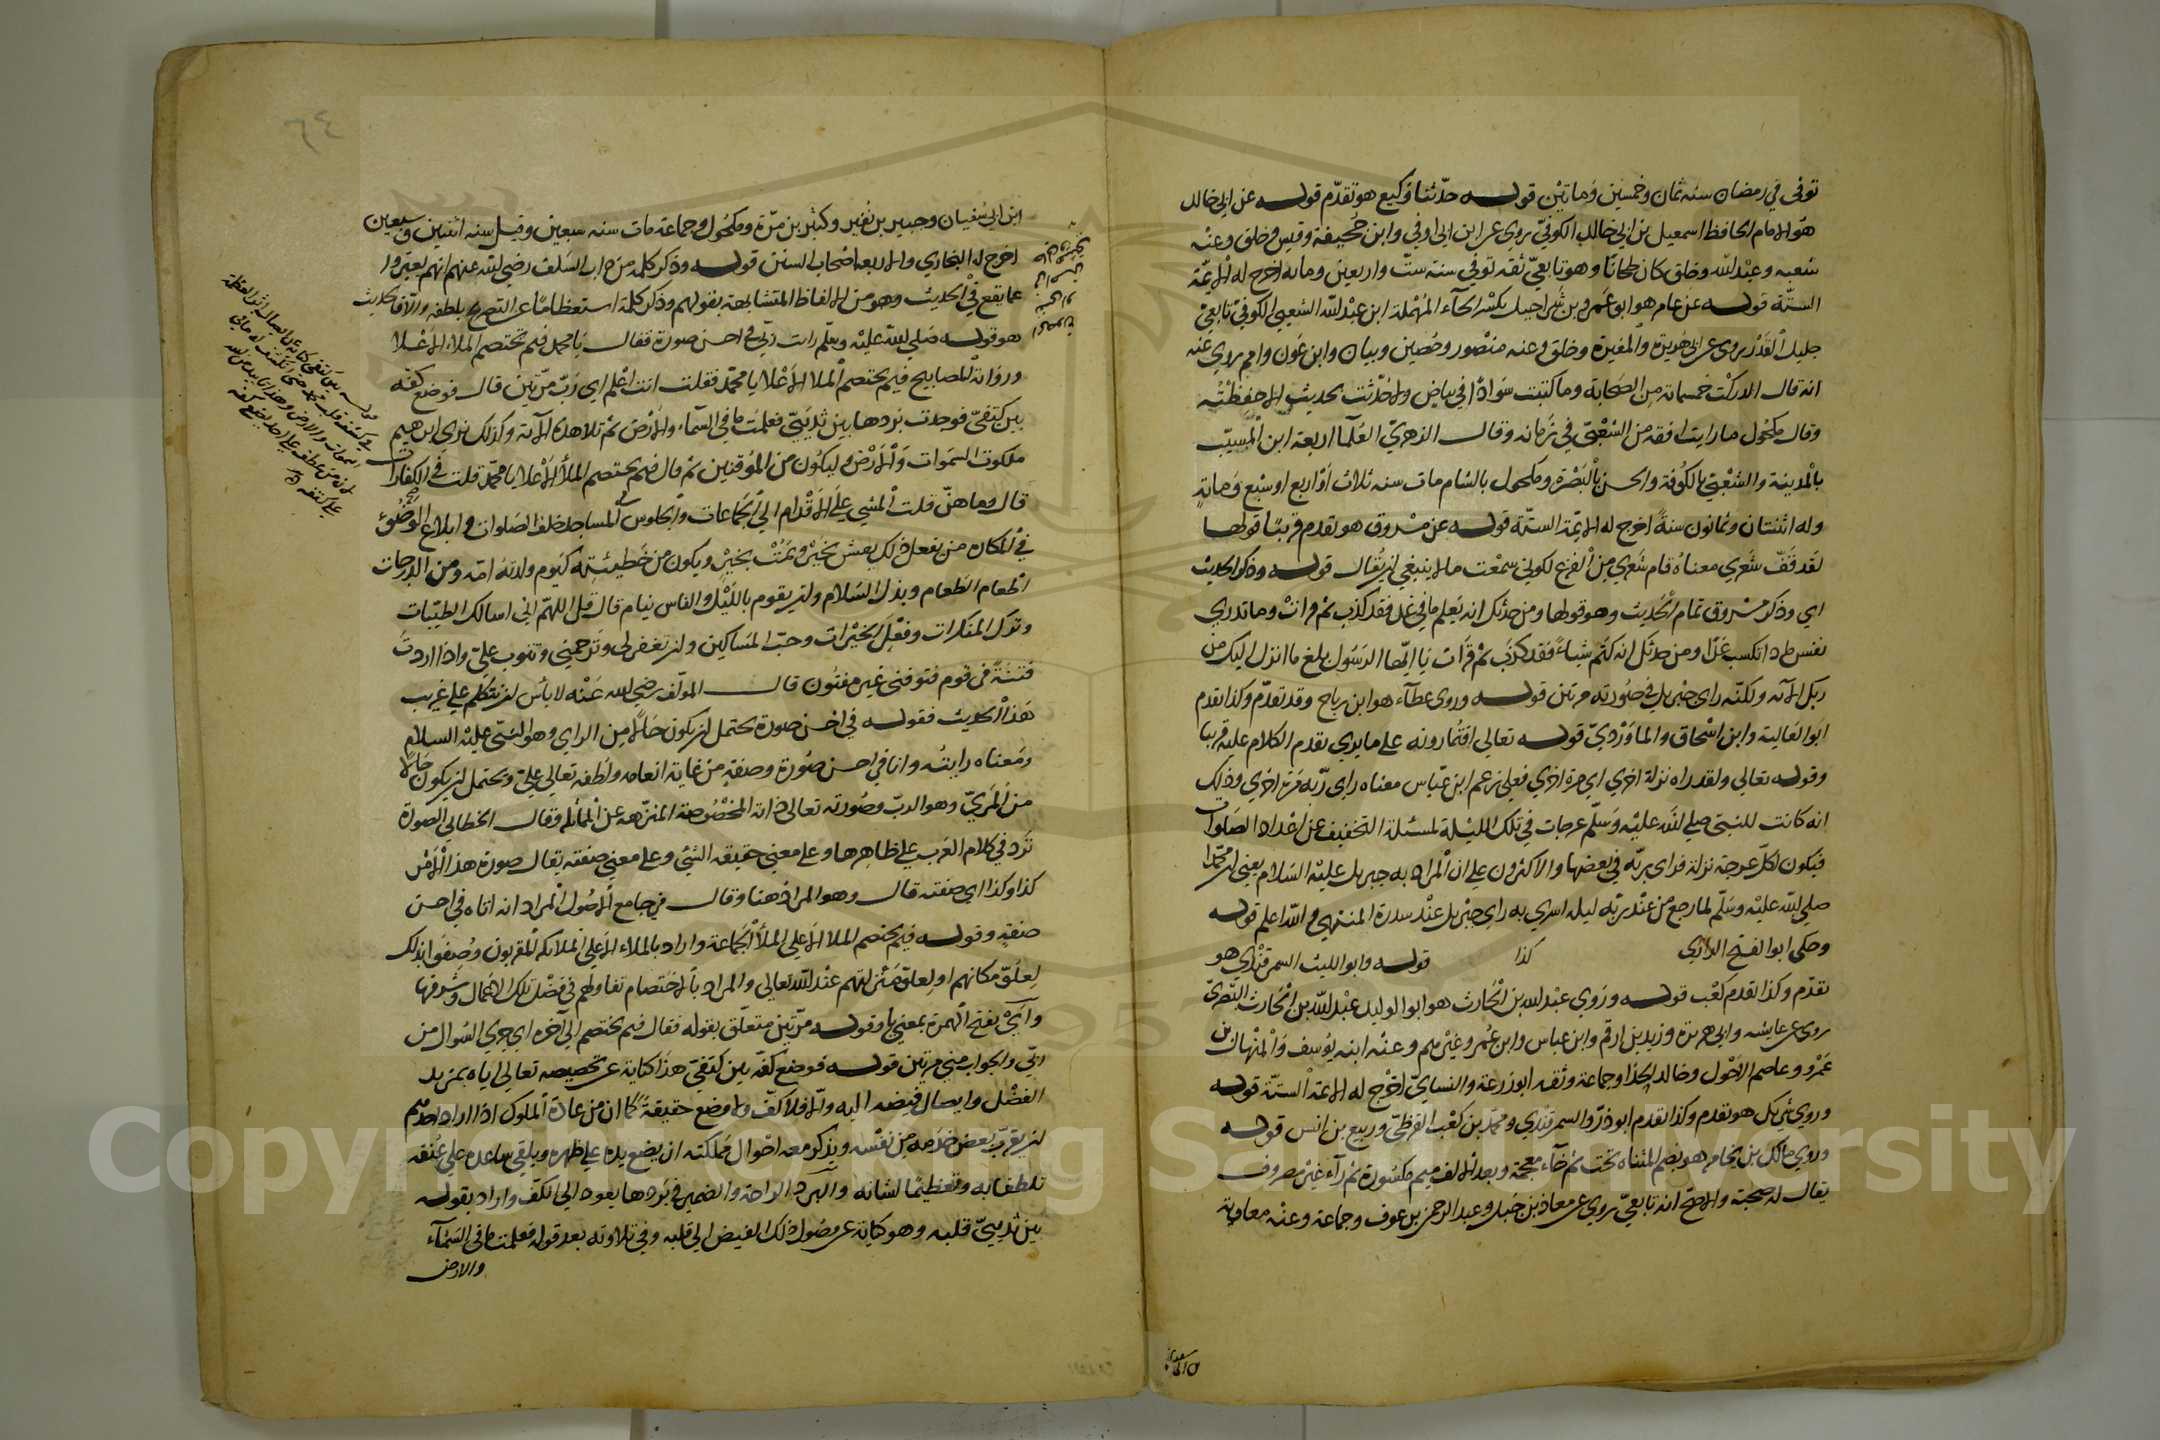 توفى في رمضان سنه ثمان وخمسين ومايتين قوله حدثنا وكيع هو تقدم قوله عن ابي خالد
هو الامام الحافظ اسمعيل بن ابي خالد الكوفي روى عن ابن ابي اوفى وابن جحيفة وقيس وخلق وعنه
شعبه وعبد الله وخلق كان طحانا وهو تابعي ثقه توفي سنة ست واربعين ومايه اخرج له الايمة
الستة قوله عن عامر هو ابو عمرو بن شراحيل بكسر الحاء المهملة ابن عبد الله الشعبي الكوفي تابعي
جليل القدر روى عن ابي هريرة والمغيرة وخلق وعنه منصور وحصين وبيان وابن عون وامم روي عنه
انه قال ادركت خمسمائة من الصحابة وما كتبت سوادا في بياض ولا حدثت بحديث الا حفظته
وقال مكحول ما رايت افقه من الشعبي في زمانه وقال الزهري العلما اربعة ابن المسيب
بالمدينة والشعبي بالكوفة والحسن بالبصرة ومكحول بالشام مات سنه ثلاث او اربع او سبع ومائة
وله اثنتان وثمانون سنة اخرج له الايمة الستة قوله عن مسروق هو تقدم قريبا قولها
لقد قف شعري معناه قام شعري من الفزع لكوني سمعت ما لا ينبغي ان يقال قوله وذكر الحديث
اي وذكر مسروق تمام الحديث وهو قولها ومن حدثك انه يعلم ما في غد فقد كذب ثم قرات وما تدري
نفس ماذا تكسب غدا ومن حدثك انه كتم شياء فقد كذب ثم قرات يا ايها الرسول بلغ ما انزل اليك من
ربك الآية ولكنه راى جبريل في صورته مرتين قوله وروى عطاء هو ابن رباح وقد تقدم وكذا تقدم
ابو العالية وابن اسحاق والماوردي قوله تعالى افتمارونه على ما يرى تقدم الكلام عليه قريبا
وقوله تعالى ولقد راه نزلة اخرى اي مرة اخرى فعلى زعم ابن عباس معناه راى ربه مرة اخرى وذلك
انه كانت للنبي صلى الله عليه وسلم عرجات في تلك الليلة لمسئلة التخفيف عن اعداد الصلوات
فيكون لكل عرجة نزلة فراى بربه في بعضها والاكثرون على ان المراد به جبريل عليه السلام يعني ان محمدا
صلى الله عليه وسلم لما رجع من عند ربه ليلة اسري به راى جبريل عند سدرة المنتهى والله اعلم قوله
وحكى ابو الفتح الرازي كذا قوله وابو الليث السمرقندي هو
تقدم وكذا تقدم كعب قوله وروى عبد الله بن الحارث هو ابو الوليد عبد الله بن الحارث البصري
روى عن عايشه وابي هريرة وزيد بن ارقم وابن عباس وابن عمر وغيرهم وعنه ابنه يوسف والمنهال بن
عمرو وعاصم الاحول وخالد الحذا وجماعة وثقه ابو زرعة والنساي اخرج له الايمة الستة قوله
وروى شريك هو تقدم وكذا تقدم ابو ذر والسمرقندي ومحمد بن كعب القرظي وربيع بن انس قوله
وروى مالك بن يخامر هو بضم المثناه تحت ثم خاء معجمة وبعد الالف ميم مكسورة ثم راء غير مصروف
يقال له صحبة والاصح انه تابعي روى عن معاذ بن جبل وعبد الرحمن بن عوف وجماعة وعنه معاوية
٦٤
ابن ابي سفيان وجبير بن نفير وكثير بن مرة ومكحول وجماعة مات سنه سبعين وقيل سنه اثنين وسبعين
اخرج له البخاري والاربعة اصحاب السنن قوله وذكر كلمة من داب السلف رضي الله عنهم انهم يعبروا
عما يقع في الحديث وهو من الالفاظ المتشابهة بقولهم وذكر كلمة استعظاما عن التصريح بلفظه والا فالحديث
هو قوله صلى الله عليه وسلم رايت ربي في احسن صورة فقال يا محمد فيم يختصم الملاء الاعلا
ورواية المصابيح فيم يختصم الملا الاعلا يا محمد فقلت انت اعلم اي رب مرتين قال فوضع كفه
بين كتفي فوجدت بردها بين ثديي فعلمت ما في السماء والارض ثم تلا هذه الآية وكذلك نرى ابرهيم
ملكوت السموات والارض وليكون من الموقنين ثم قال فيم يختصم الملأ الاعلا يا محمد قلت في الكفارات
قال وما هن قلت المشي على الاقدام الى الجماعات والجلوس في المساجد خلف الصلوات وابلاغ الوضوء
في المكاره من يفعل ذلك يعش بخير ويمت بخير ويكون من خطيئته كيوم ولدته امه ومن الدرجات
اطعام الطعام وبذل السلام وان يقوم بالليل والناس نيام قال قل اللهم اني اسالك الطيبات
وترك المنكرات وفعل الخيرات وحب المساكين وان تغفر لي وترحمني وتتوب علي واذا اردت
فتنة في قوم فتوفني غير مفتون قال المولف رضي الله عنه لا بأس ان نتكلم على غريب
هذا الحديث فقوله في احسن صورة يحتمل ان يكون حالا من الراي وهو النبي عليه السلام
ومعناه رايته وانا في احسن صورة وصفة من غاية انعامه ولطفه تعالى علي ويحتمل ان يكون حالا
من المريّ وهو الرب وصورته تعالى ذاته المخصوصة المنزهة عن المماثلة وقال الخطابي الصورة
ترد في كلام العرب على ظاهرها وعلى معنى حقيقة الشيء وعلى معنى صفته يقال صورة هذا الامر
كذا وكذا اي صفته قال وهو المراد هنا وقال في جامع الاصول المراد انه اتاه في احسن
صفة وقوله فيم يختصم الملا الاعلى الملأ الجماعة واراد بالملاء الاعلى الملائكة المقربون وصفوا بذلك
لعلو مكانهم او لعلو منزلتهم عند الله تعالى والمراد بالاختصام تقاولهم في فضل تلك الاعمال وشرفها
وأي بفتح الهمزة بمعنى يا وقوله مرتين متعلق بقوله فقال فيم يختصم الى آخره اي جرى السوال من
ربي والجواب مني مرتين قوله فوضع كفه بين كتفي هذا كناية عن تخصيصه تعالى اياه بمزيد
الفضل وايصال فيضه اليه والا فلا كف ولا وضع حقيقة كما ان من عادة الملوك اذا اراد احدهم
ان يقرب بعض خدمه من نفسه ويذكر معه احوال مملكته ان يضع يده على ظهره ويلقي ساعده على عنقه
تلطفا به وتعظيما لشانه والبرد الراحة والضمير في بردها يعود الى الكف واراد بقوله
بين ثديي قلبه وهو كناية عن وصول ذلك الفيض الى قلبه وفي تلاوته بعد قوله فعلمت ما في السماء
والارض
Copyright © King Saud University